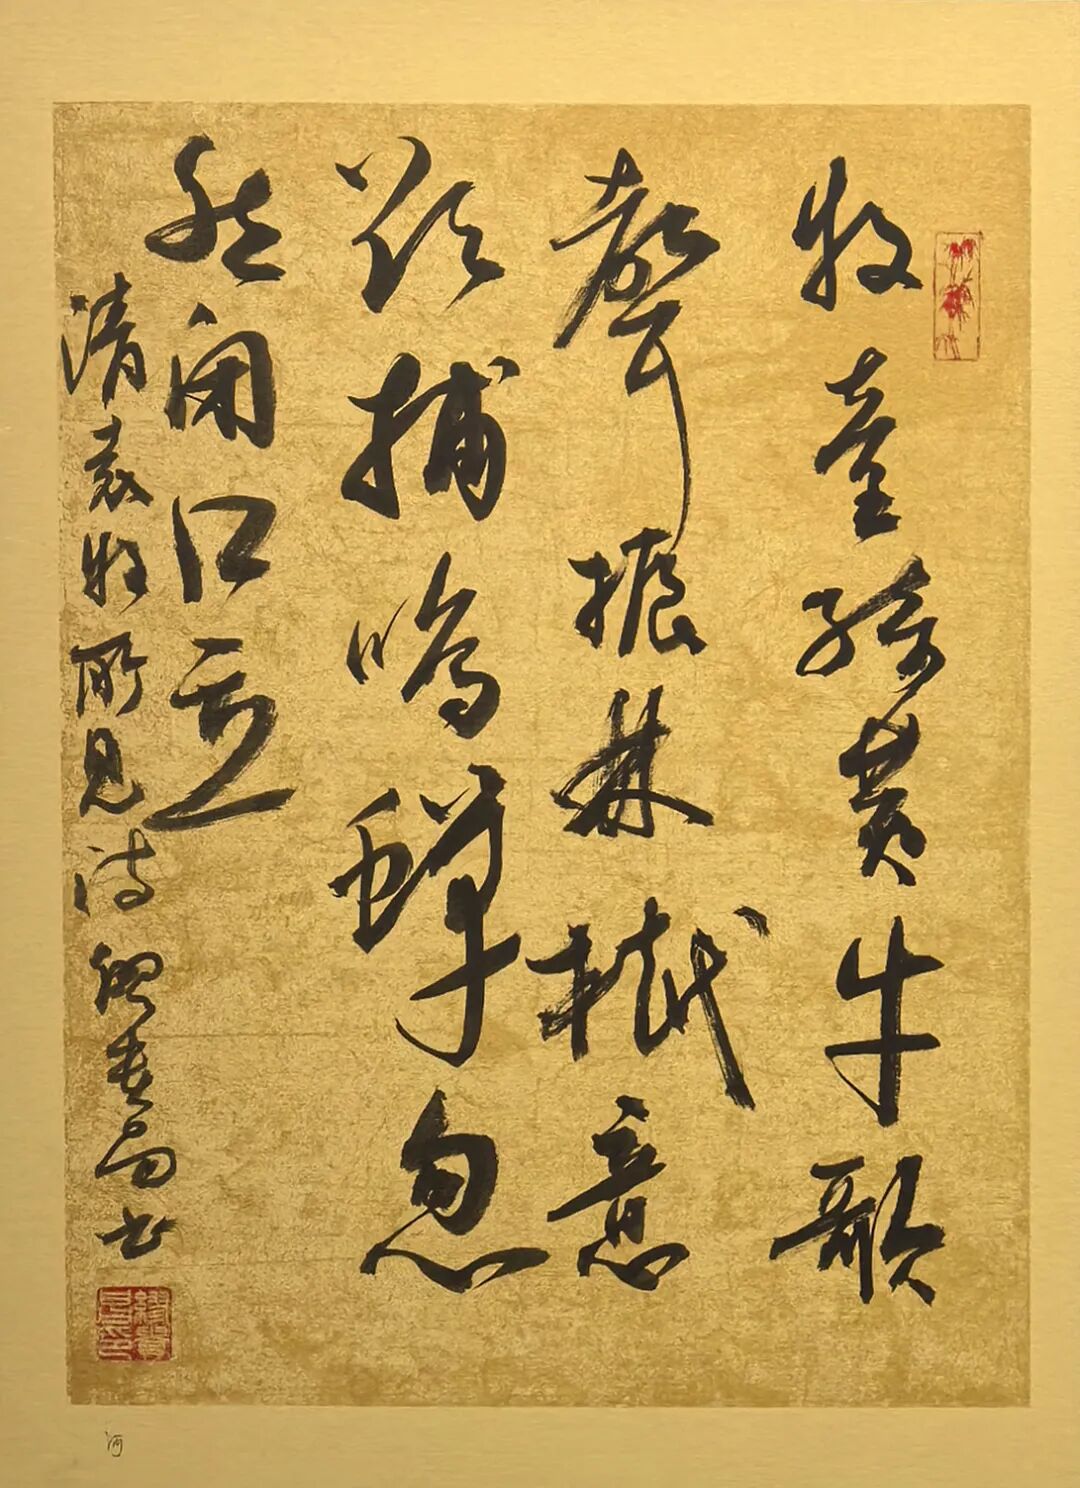 牧童騎黄牛歌
聲振林樾意
欲捕鳴蟬忽
然闭口立
清袁枚所見诗 书